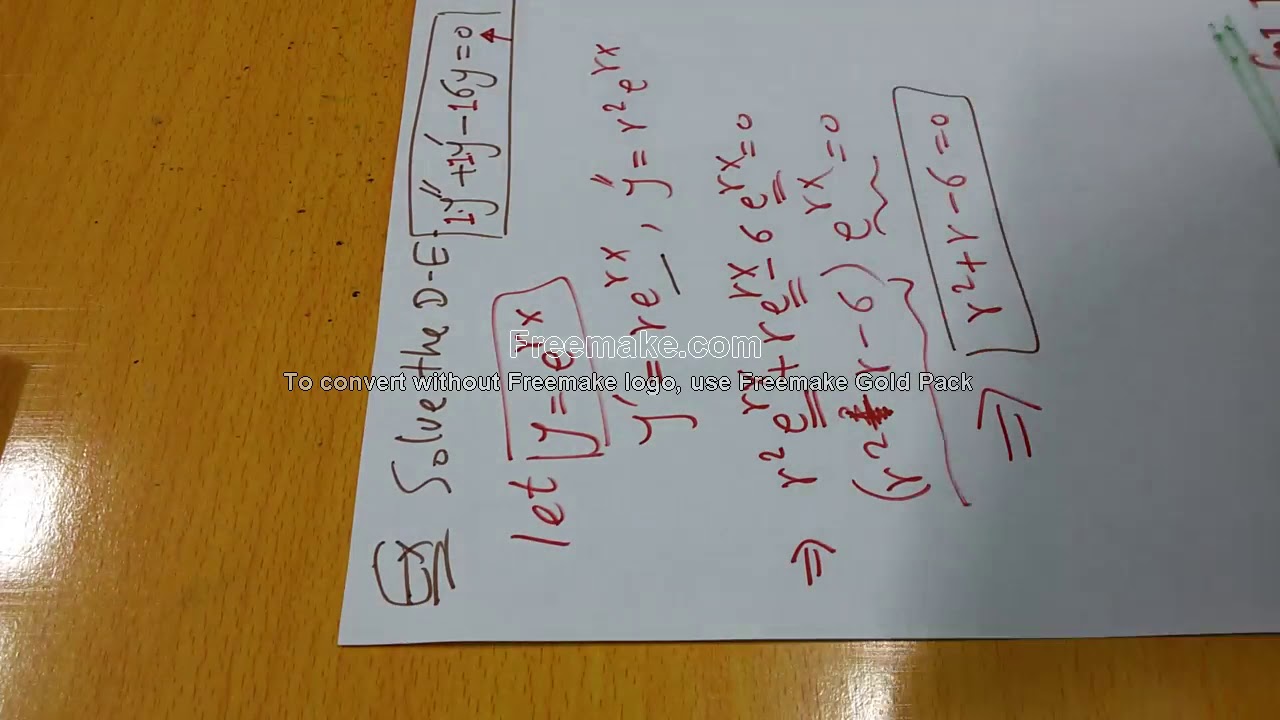 Ex Solve the D-E: 1.y'' + 1y' - 16y = 0
let y = e^rx
y' = re^rx , y'' = r^2 e^rx
⇒ r^2 e^rx + re^rx - 6 e^rx = 0
(r^2 + r - 6) e^rx = 0
⇒ r^2 + r - 6 = 0
Freemake.com
To convert without Freemake logo, use Freemake Gold Pack